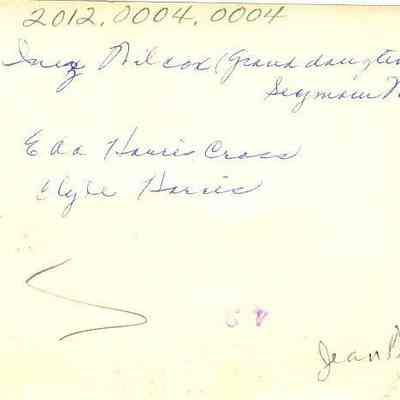 2012.0004.0004
Inez Wilcox (Grand daughter
Seymour
Eda Harris Cross
Clyde Harris
Jean